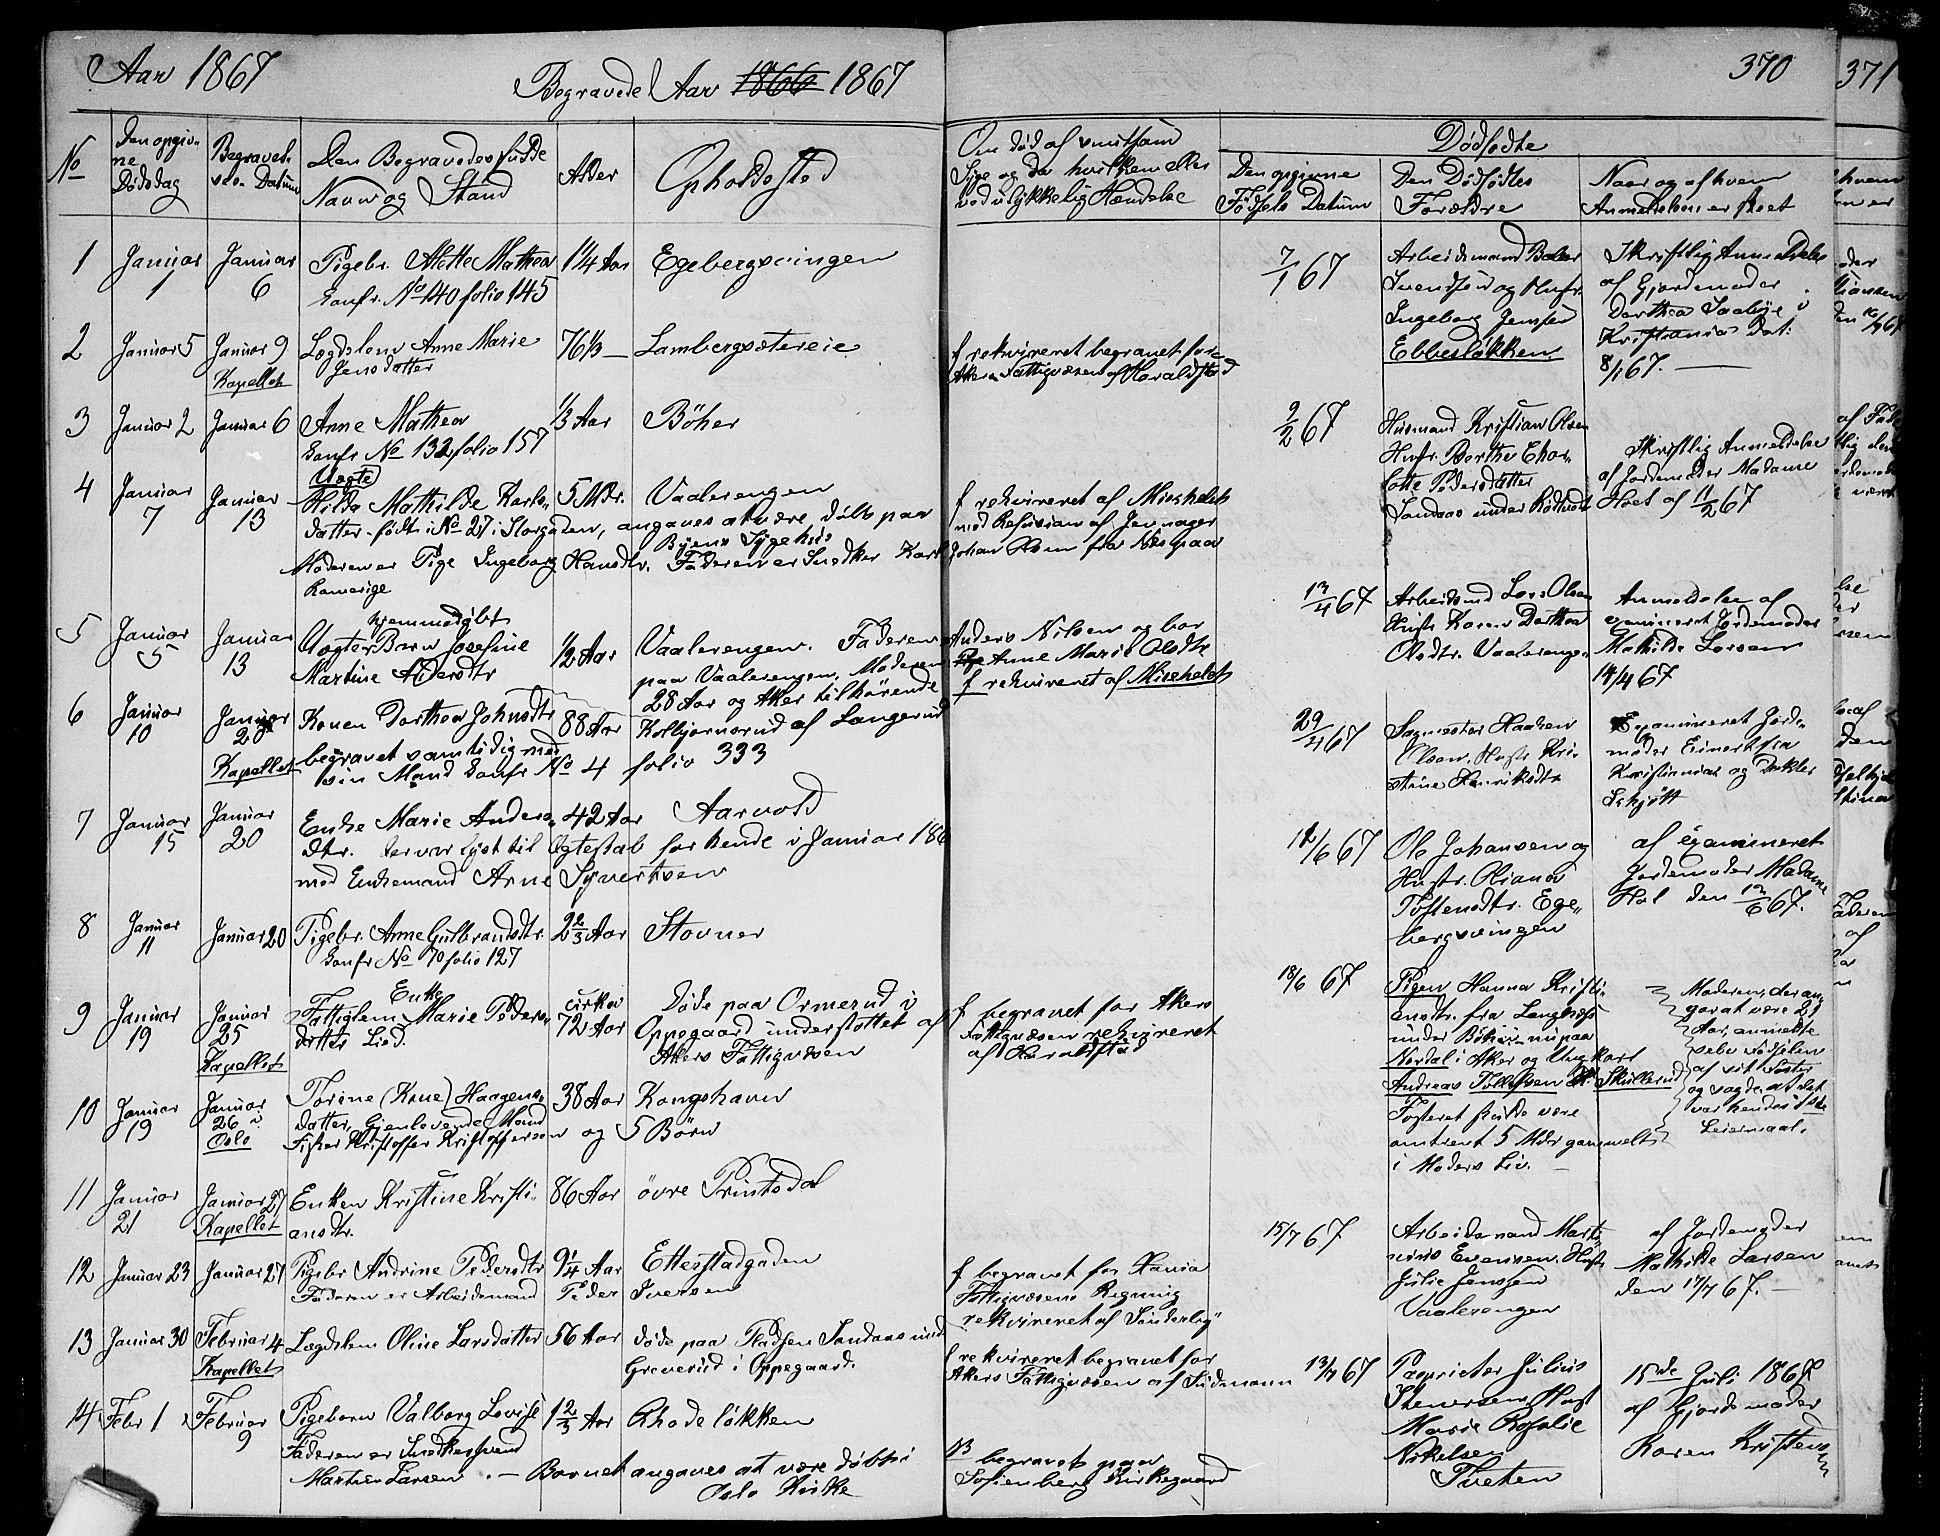 Aar 1867
Begravede Aar 1866 1867
370
371
No
Den opgiv-
ne
Dødsdag
Begravel-
ses-Datum
Den Begravedes fulde
Navn og Stand
Alder
Opholdssted
Om død af smitsom
Syge og da hvilken eller
ved ulykkelig Hændelse
Dødfødte
Den opgivne
Fødsels Datum
Den Dødfødtes
Forældre
Naar og af hvem
Anmeldelsen er skeet
1 Januar 1 Januar 6 Pigebr. Alette Mathea 1 1/4 Aar Egebergsvingen
Confr. No 140 folio 145
2 Januar 5 Januar 9 Lægdslem Anne Marie 76 1/3 — Lambergsætereie
Kapellet Jensdatter
f rekvireret begravet for
Akers Fattigvæsen af Haraldstad
3 Januar 2 Januar 6 Anne Mathea 1/3 Aar Böher
Confr No 132 folio 157
4 Januar 7 Januar 13 Uægte
Hilda Mathilde Karls- 5 Mdr. Vaalerengen
datter født i No 27 i Storgaden, angaves at være døbt paa
Byens Sygehus
Moderen er Pige Ingeborg Hansdtr. Faderen er Snedker Karl Johan Olsen fra Næs paa
Romerige
f rekvireret af Missheldt
5 Januar 5 Januar 13 hjemmedøbt
Uægte Barn Josefine 1/2 Aar Vaalerengen. Faderen Anders Nilsen og bor
Martine Andersdtr paa Vaalerengen, Moderen Pige Anne Marie Olsdtr
28 Aar og Aker tilhørende f rekvireret af Missheldt
6 Januar 10 Januar 20 Konen Dorthea Johnsdtr 88 Aar Kolbjørnsrud af Langerud
Kapellet begravet samtidig med
sin Mand Confr No 4 folio 333
7 Januar 15 Januar 20 Enke Marie Anders- 42 Aar Aarvold
dtr. der var lyst til Ægteskab for hende i Januar 186
med Enkemand Arne Syvertsen
8 Januar 11 Januar 20 Pigebr. Anne Gulbrandsdtr. 2 2/3 Aar Stovner
Confr No 70 folio 127
9 Januar 19 Januar 25 Enke
Fattiglem Marie Peders- cirka 72 Aar Døde paa Ormerud i
datter Lied. Oppegaard understøttet af
Kapellet Akers Fattigvæsen
f begravet for Akers
Fattigvæsen rekvireret
af Haraldstad
10 Januar 19 Januar 26 i Oslo Torine (Kone) Haagens- 38 Aar Kongshavn
datter, Gjenlevende Mand
Fisker Kristoffer Kristoffersen og 5 Børn
11 Januar 21 Januar 27 Enken Kristine Kristi- 86 Aar övre Printsdal
Kapellet ansdtr.
12 Januar 23 Januar 27 Pigebr Andrine Pedersdtr 9 1/4 Aar Etterstadgaden
Faderen er Arbeidsmand Peder Iversen
f begravet for Xania
Fattigvæsens Regning
rekvireret af Sinderby
13 Januar 30 Februar 4 Lægdslem Oline Larsdatter 56 Aar døde paa Pladsen Sandaas und
Kapellet Greverud i Oppegaard.
f rekvireret begravet for
Akers Fattigvæsen af Sudmann
14 Febr 1 Februar 9 Pigebarn Valborg Lovise 1 2/3 Aar Rhodeløkken
Faderen er Snedkersvend
Martin Larsen. — Barnet angaves at være døbt i
Oslo Kirke
NB begravet paa
Sofienberg Kirkegaard
7/1 67
Arbeidsmand
Svendsen og Hufr.
Ingeborg Jensen
Ebbesløkken
Skriftlig Anmeldelse
af Gjordemoder
Dorthea Saaløje i
Kristiania Dat:
8/1 67. —
9/2 67
Husmand Kristian Olsen
Hufr. Berthe Char-
lotte Pedersdatter
Sandaas under
Skriftlig Anmeldelse
af Jordemoder Madame
Hoel af 11/2 67
13/4 67
Arbeidsmd Lars Olsen
Hustr Karen Dorthea
Olsdtr. Vaalerengen
Anmeldelse af
examineret Jordemoder
Mathilde Larsen
14/4 67
29/4 67
Sagmester Haaken
Olsen, Hustr. Kri-
stine Henriksdtr
Examineret Jorde-
moder Einert fra
Kristiania og Doktor
Schjøtt
12/6 67
Ole Johansen og
Hustr. Oliana
Tostensdtr. Ege-
bergsvingen
af examineret
Jordemoder Madame
Hoel den 12/6 67.
18/6 67
Pigen Hanna Kristi-
ansdtr. fra Langnæs
under Böhler nu paa
Nordal i Aker og Ungkarl
Andreas Tollefsen Skullerud
Fosteret skulde være
omtrent 5 Mdr gammelt
i Moders Liv. —
Moderen, der an-
gav at være 21
Aar, anmeldte
selv Fødselen
af sit Foster
og sagde, at det
var hendes 1ste
Leiermaal.
15/7 67
Arbeidsmand Mart-
inius Evensen, Hustr
Julie Jensen
Vaalerengen
af Jordemoder
Mathilde Larsen
den 17/7 67. —
13/7 67
Proprietær Julius
Stenersen Hust
Marie Rosalie
Nikelsen
Tveten
15de Juli 1867
af Gjordemoder
Karen Kristens